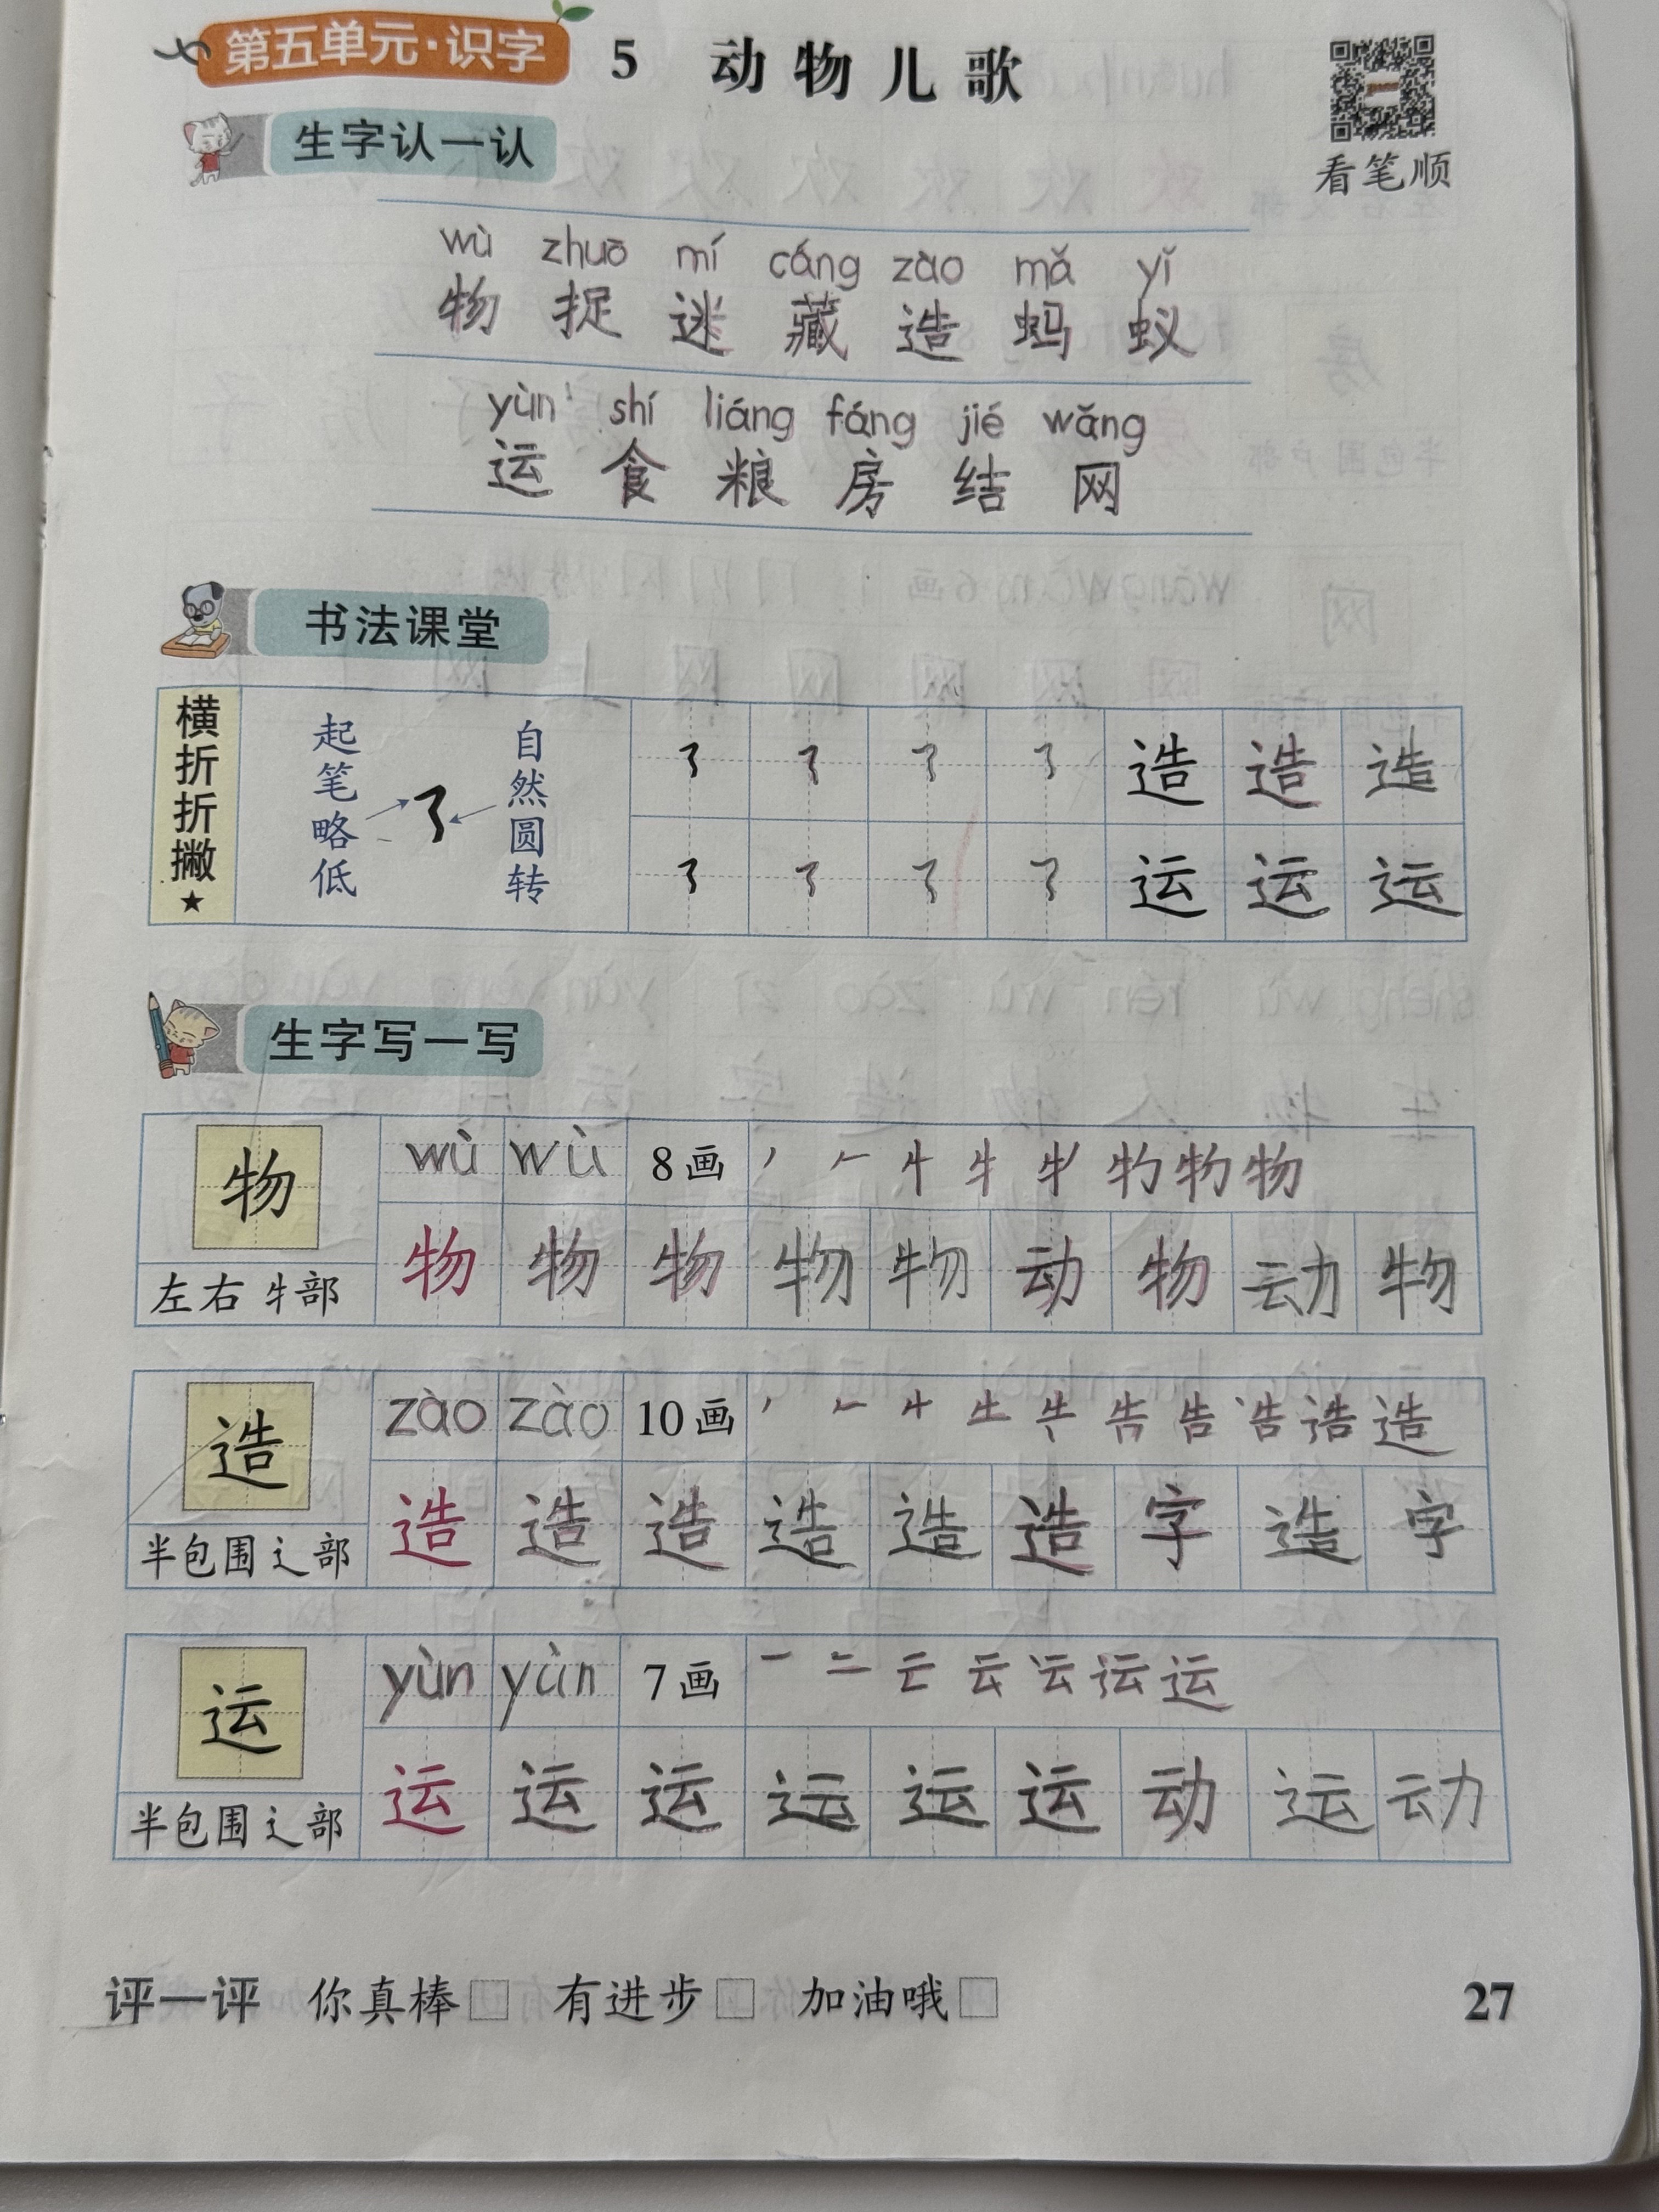 第五单元·识字 5 动物儿歌
看笔顺
生字认一认
wù zhuō mí cáng zào mǎ yǐ
物 捉 迷 藏 造 蚂 蚁
yùn shí liáng fáng jié wǎng
运 食 粮 房 结 网
书法课堂
横折折撇★
起笔略低
自然圆转
造 造 造
运 运 运
生字写一写
物 wù wù 8画 丿 𠂉 牛 物 物
左右 牜部 物 物 物 物 物 动 物 动 物
造 zào zào 10画 告 告 造
半包围 辶部 造 造 造 造 造 造 字 造 字
运 yùn yùn 7画 一 二 云 云 运
半包围 辶部 运 运 运 运 运 运 动 运 动
评一评 你真棒□ 有进步□ 加油哦□ 27